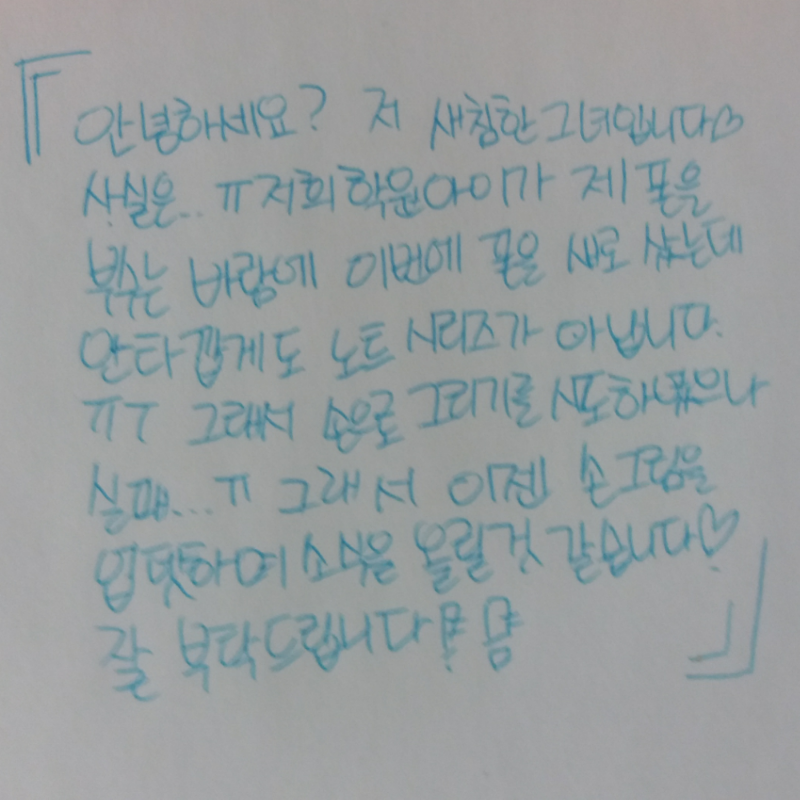 『안녕하세요? 저 새침한그녀입니다♡
사실은.. ㅠ저희학원아이가 제 폰을
부수는 바람에 이번에 폰을 새로 샀는데
안타깝게도 노트 시리즈가 아닙니다.
ㅠㅜ 그래서 손으로 그리기를 시도하였으나
실패...ㅠ 그래서 이젠 손그림을
업뎃하며 소식을 올릴것 같습니다♡.
잘 부탁드립니다!! 』